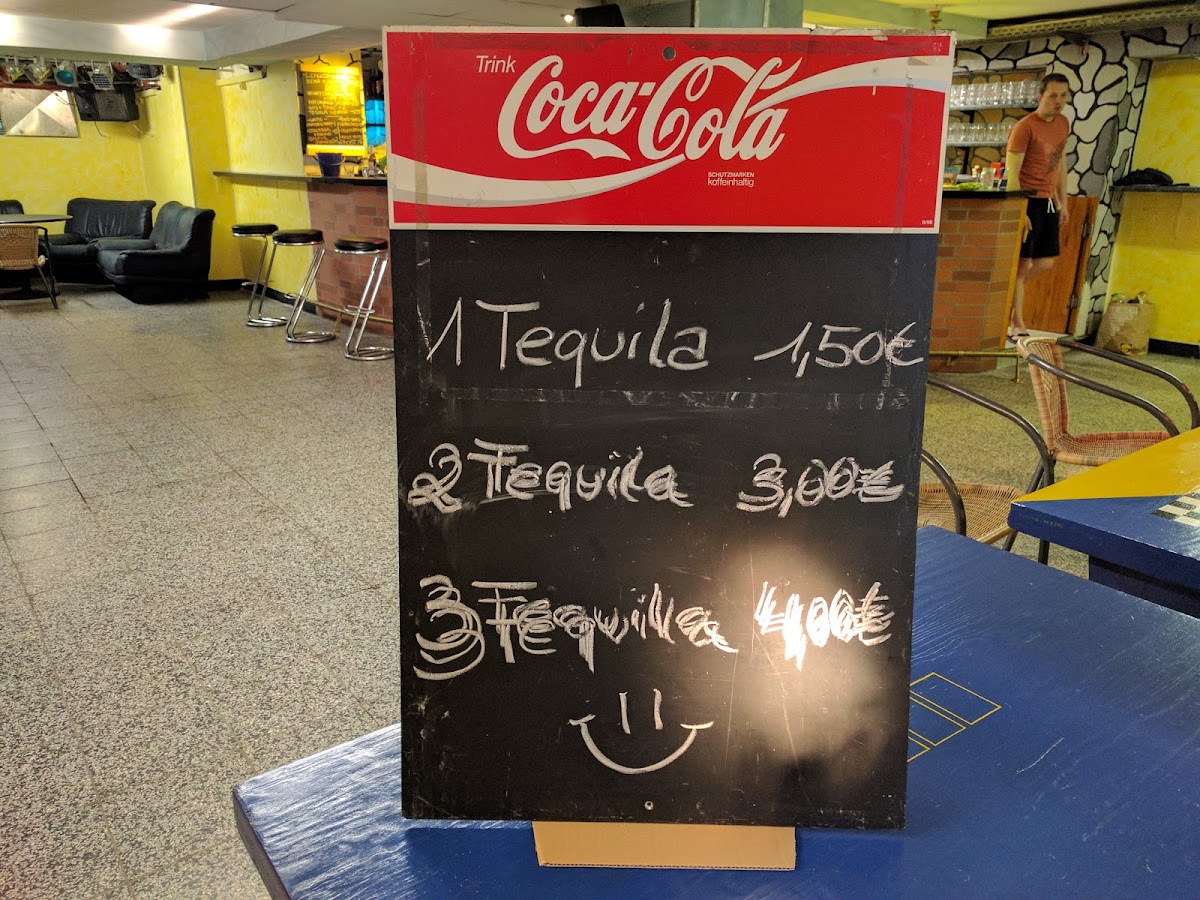 Trink Coca-Cola
SCHUTZMARKEN
koffeinhaltig
1 Tequila 1,50€
2 Tequila 3,00€
3 Tequila 4,00€